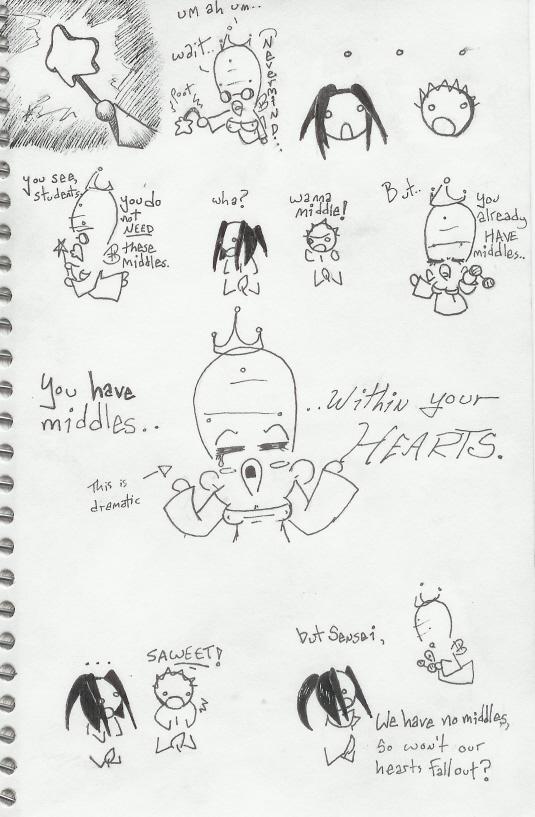 um ah um..
wait..
Nevermind...
Poot
you see,
students,
you do
not
NEED
these
middles.
wha?
wanna
middle!
But..
you
already
HAVE
middles..
You have
middles..
..Within your
HEARTS.
This is
dramatic
...
SAWEET!
but Sensei,
We have no middles,
So won't our
hearts fall out?